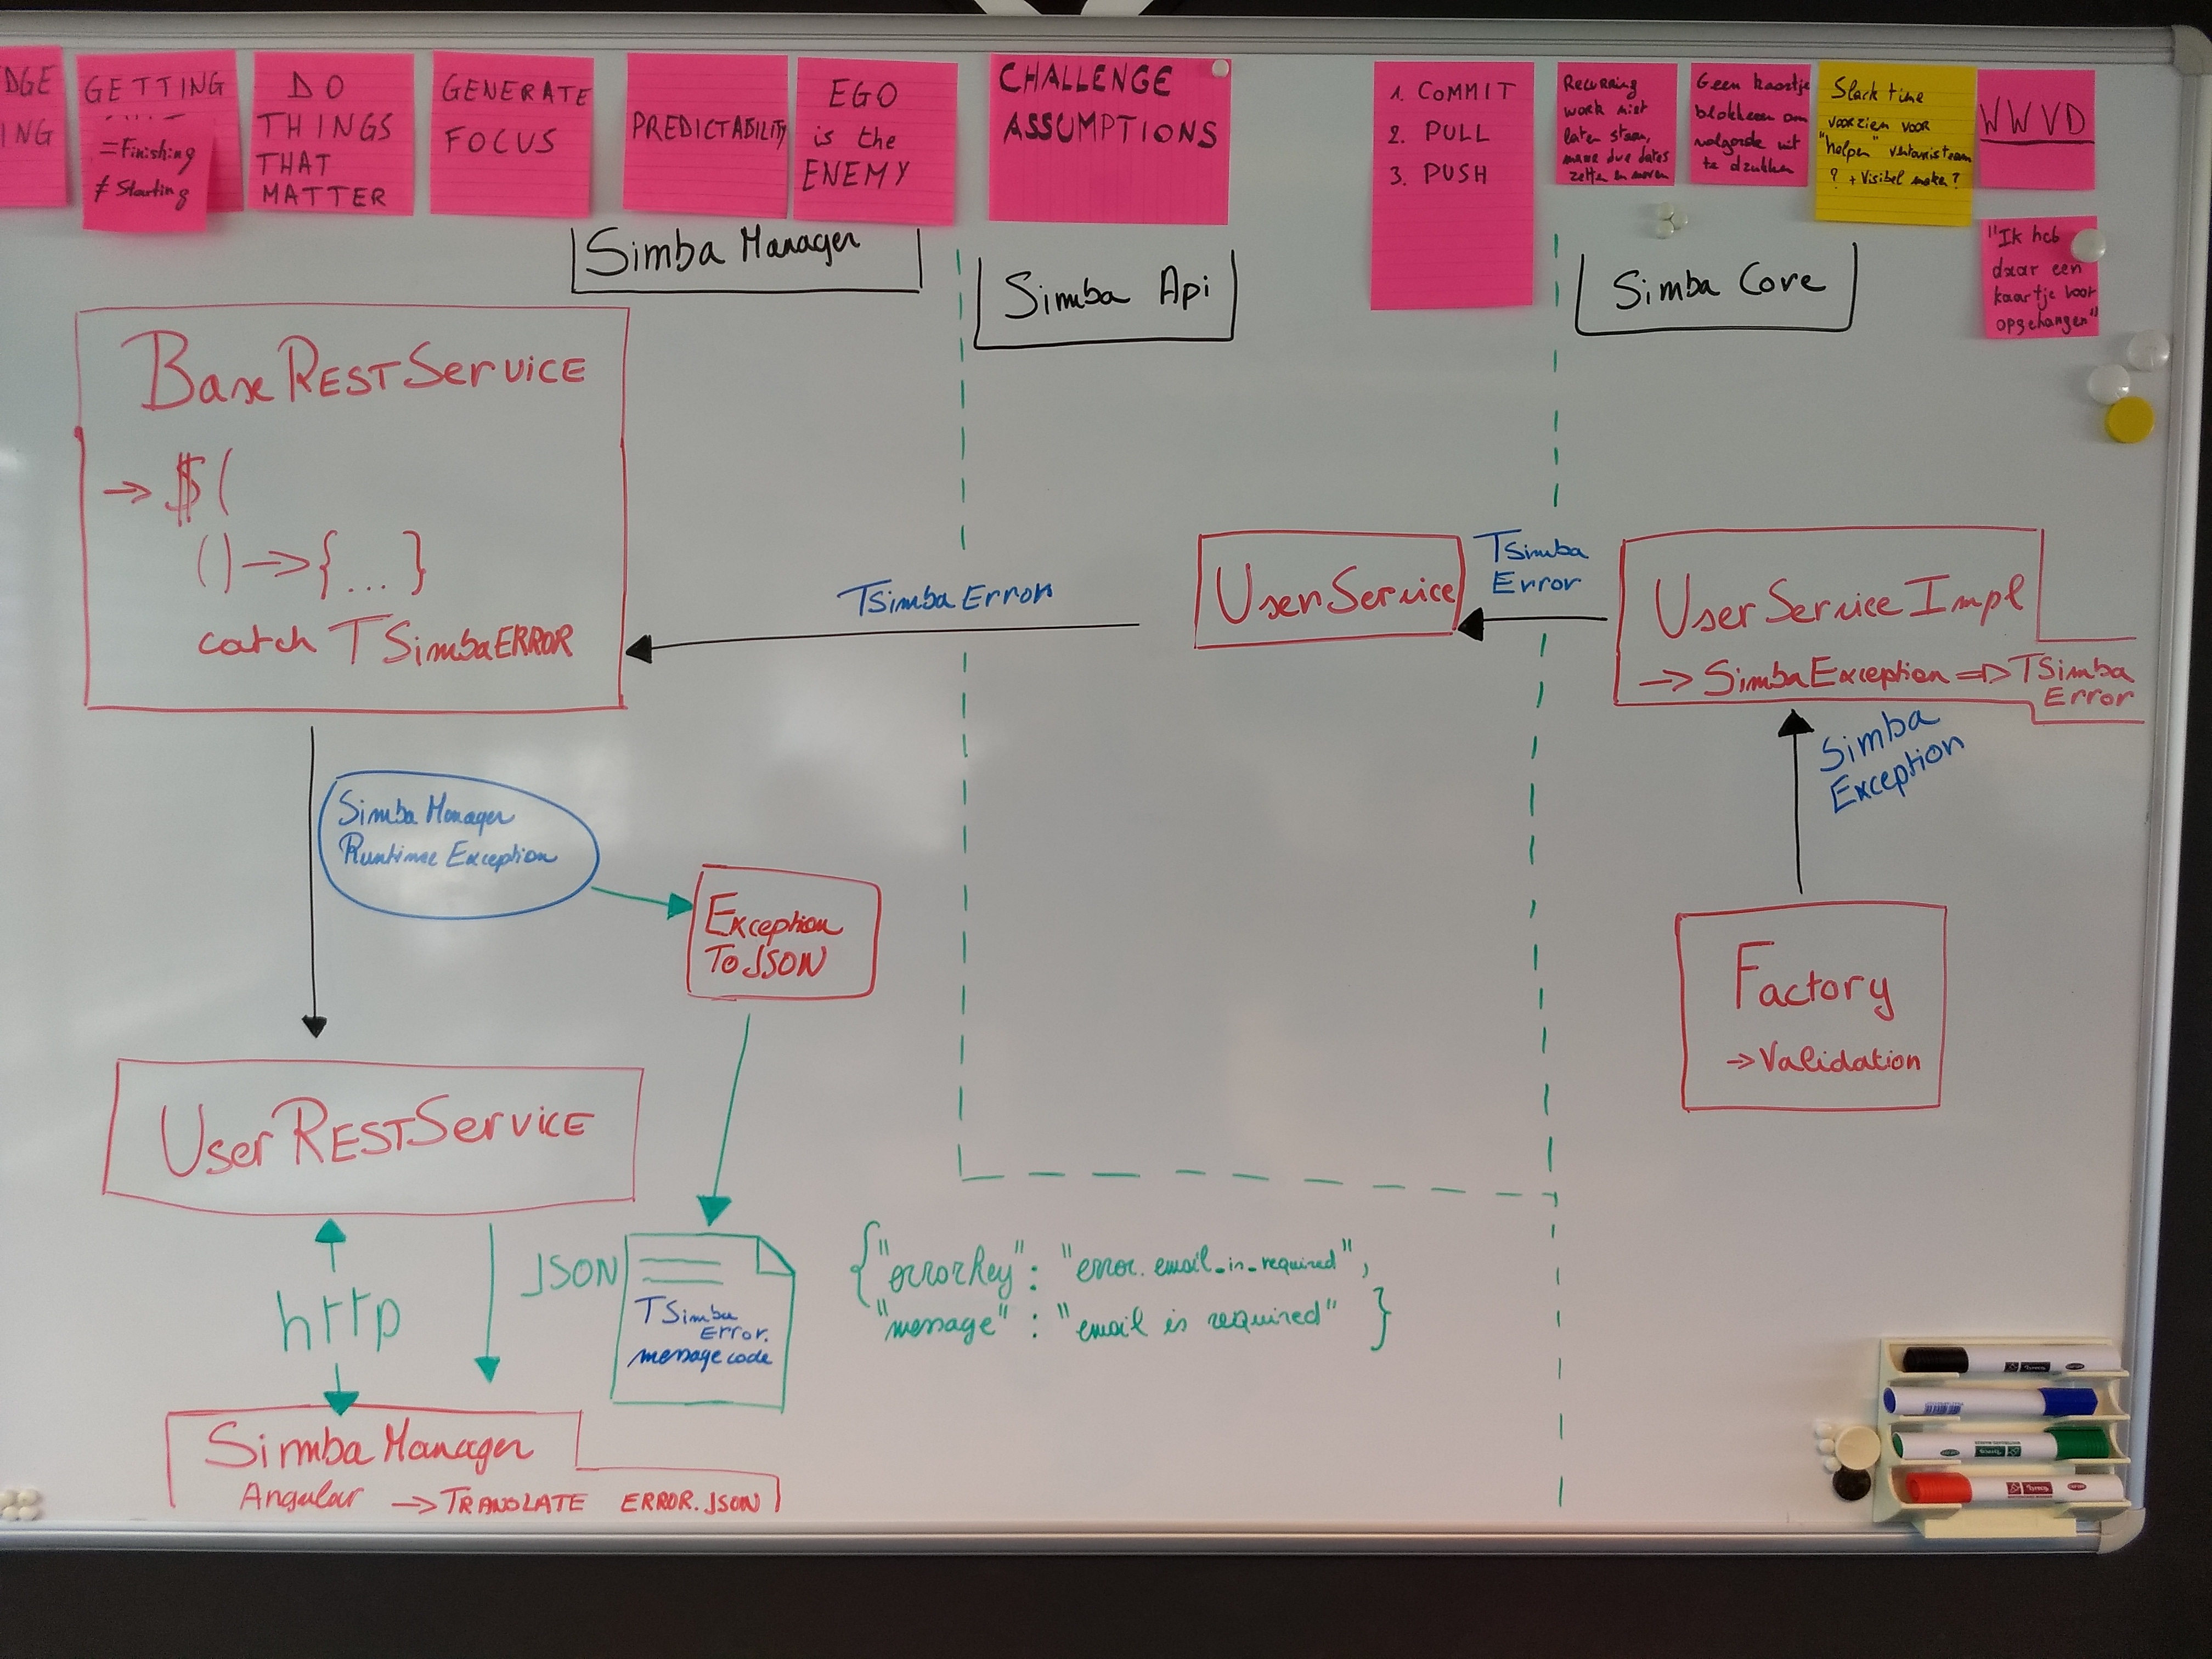 DGE
ING
GETTING
=Finishing
≠ Starting
DO
THINGS
THAT
MATTER
GENERATE
FOCUS
PREDICTABILITY
EGO
is the
ENEMY
CHALLENGE
ASSUMPTIONS
1. COMMIT
2. PULL
3. PUSH
Recurring
work niet
laten staan,
maar due dates
zetten en moven
Geen kaartje
blokkeren om
volgorde uit
te drukken
Slack time
voorzien voor
"helpen"
? + Visibel maken?
WWVD
"Ik heb
daar een
kaartje voor
opgehangen"
Simba Manager
Simba Api
Simba Core
BaseRESTService
→ $(
() → {...}
catch TSimbaERROR
TSimba Error
UserService
TSimba
Error
UserServiceImpl
→ SimbaException ⇒ TSimba
Error
Simba
Exception
Factory
→ Validation
Simba Manager
Runtime Exception
Exception
To JSON
UserRESTService
http
JSON
TSimba
Error.
messagecode
{"errorKey": "error.email_is_required",
"message": "email is required" }
Simba Manager
Angular → TRANSLATE ERROR.JSON